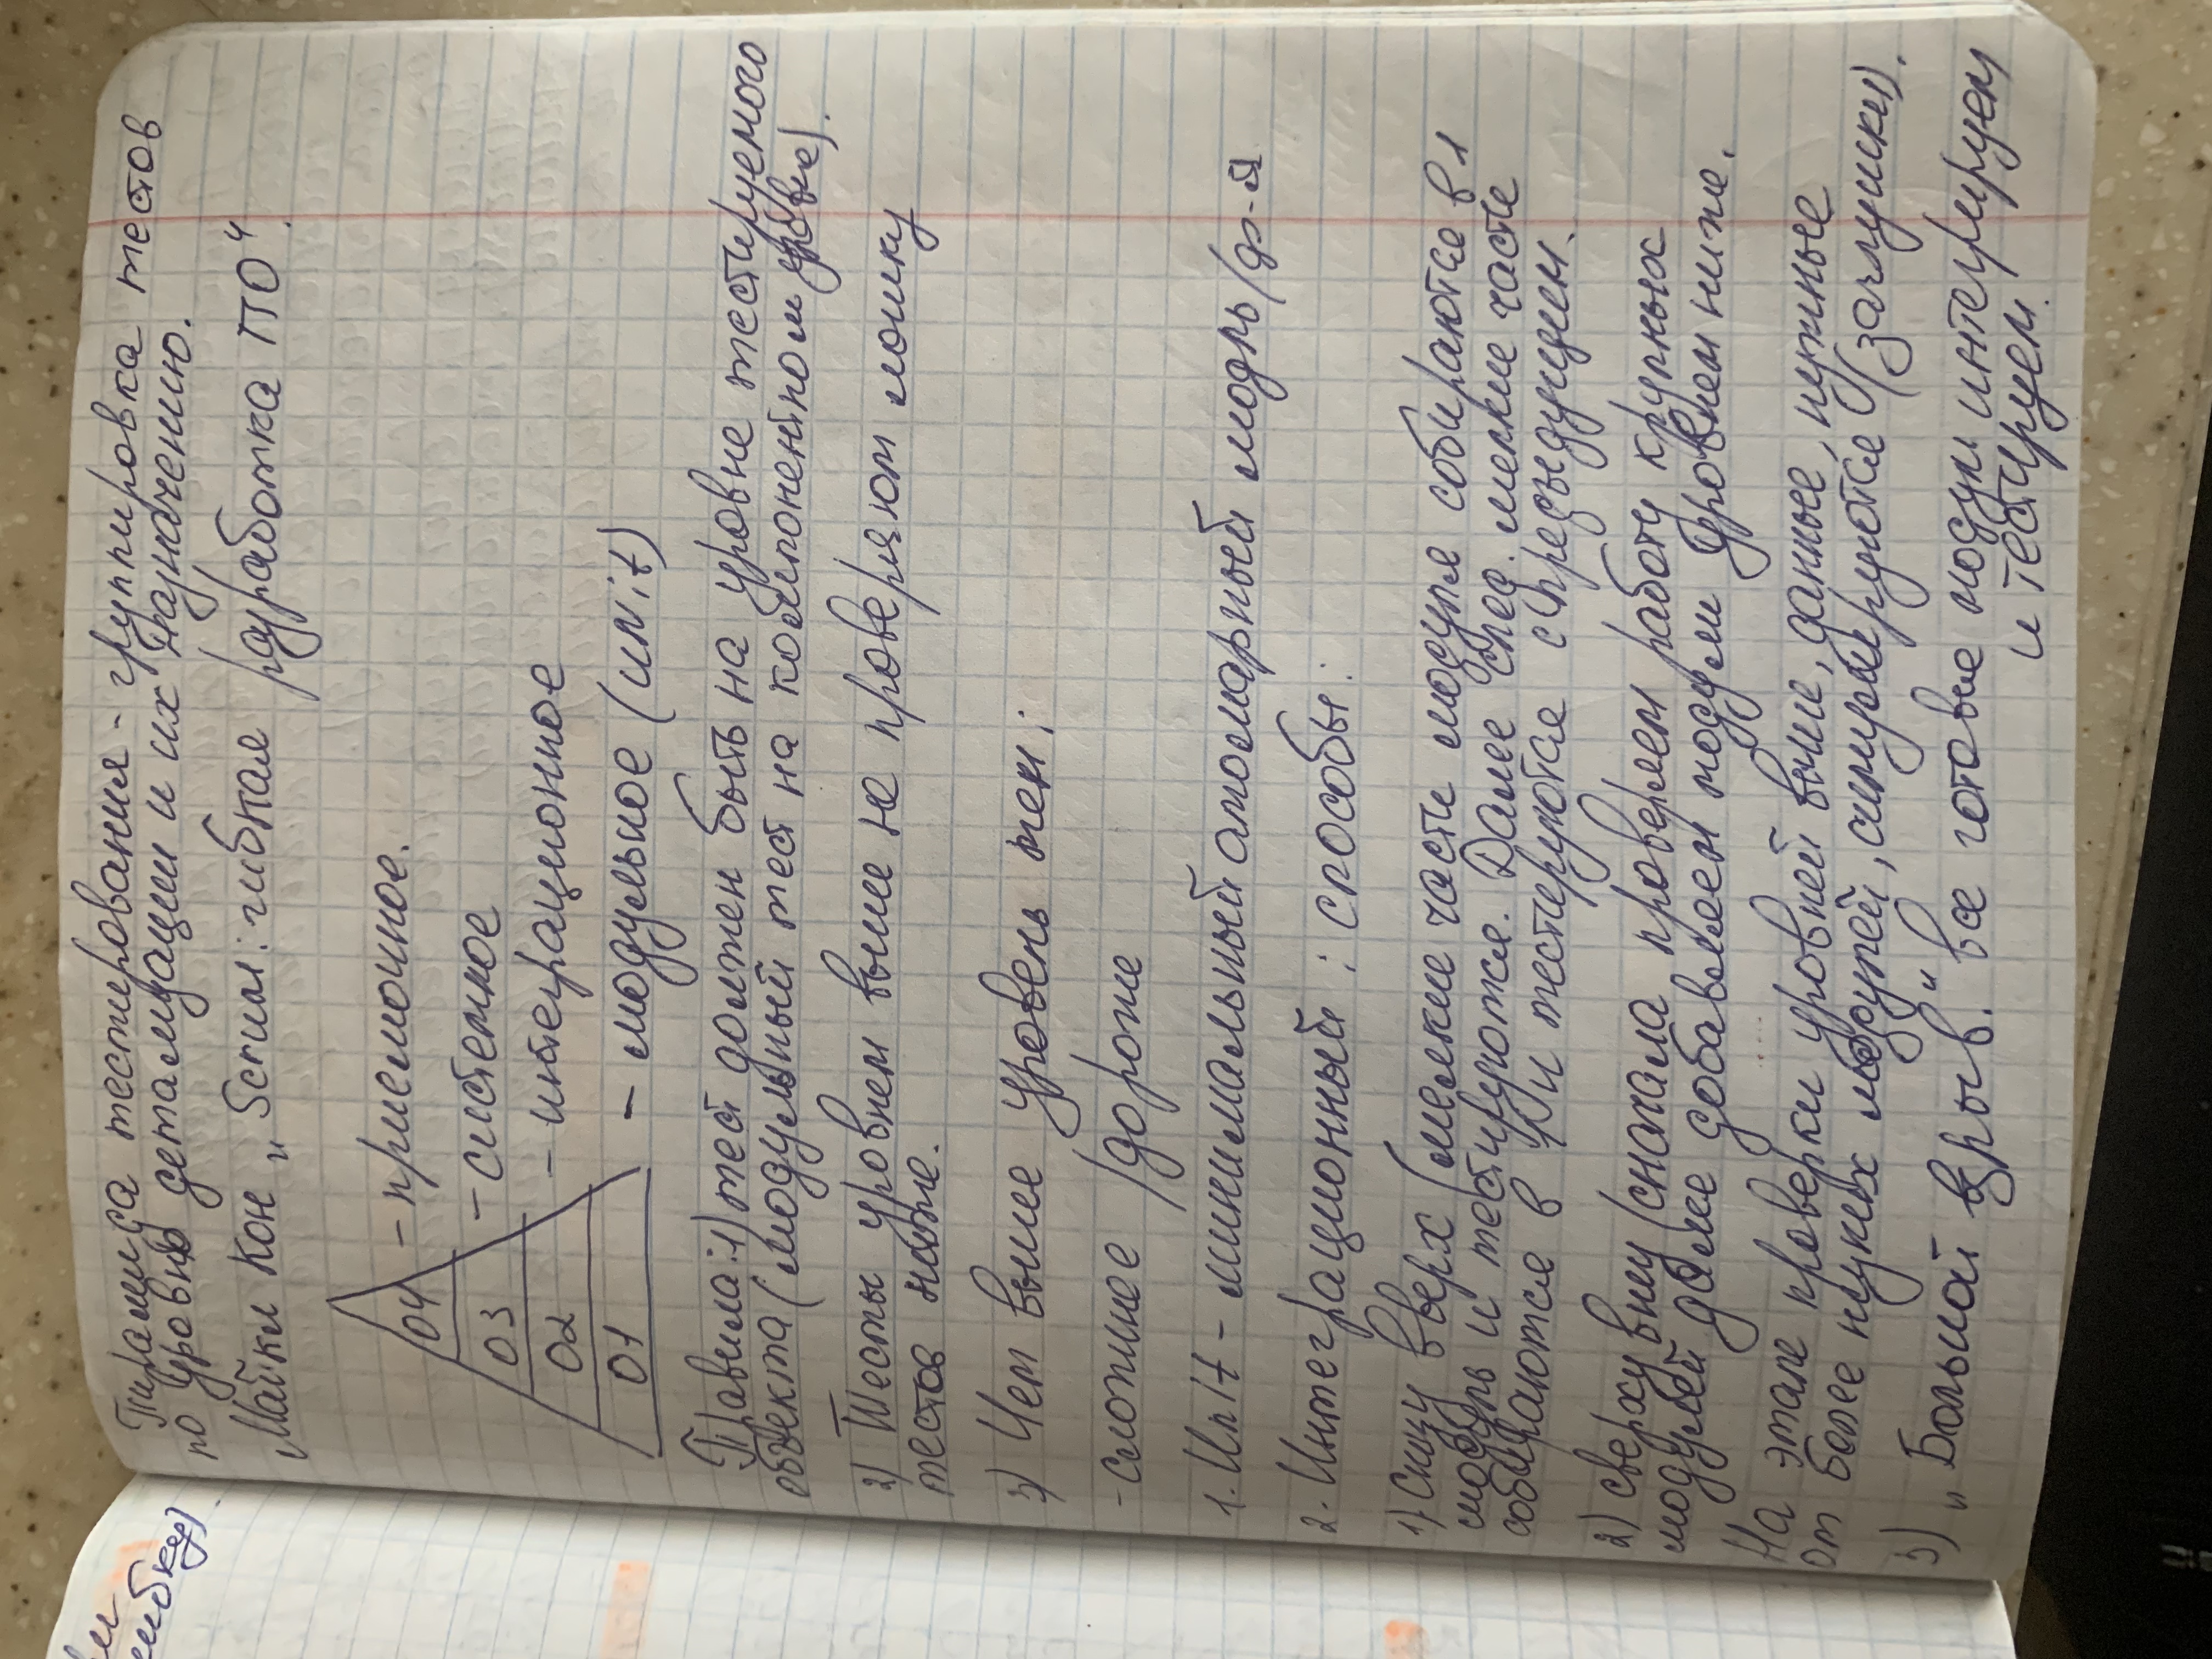 ибку).
Пирамида тестирования - группировка тестов
по уровню детализации и их назначению.
Майкл Кон „Scrum: гибкая разработка ПО“.
04 - приемочное.
03 - системное
02 - интеграционное
01 - модульное (uNit)
Правила: 1) тест должен быть на уровне тестируемого
объекта (модульный тест на компонентном уровне).
2) Тесты уровнем выше не проверяют логику
тестов ниже.
3) Чем выше уровень тем:
- сложнее / дороже
1. Unit - минимальный атомарный модль / ф-я
2. Интеграционный : способы:
1) Снизу вверх (мелкие части модуля собираются в 1
модуль и тестируются. Далее след. мелкие части
собираются в 1 и тестируются с предыдущим.
2) сверху вниз (сначала проверяем работу крупных
модулей далее добавляем модули уровнем ниже.
На этапе проверки уровней выше, данные, нужные
от более низких модулей, симулируются (заглушки).
3) „Большой взрыв.“ все готовые модули интегрируем
и тестируем.